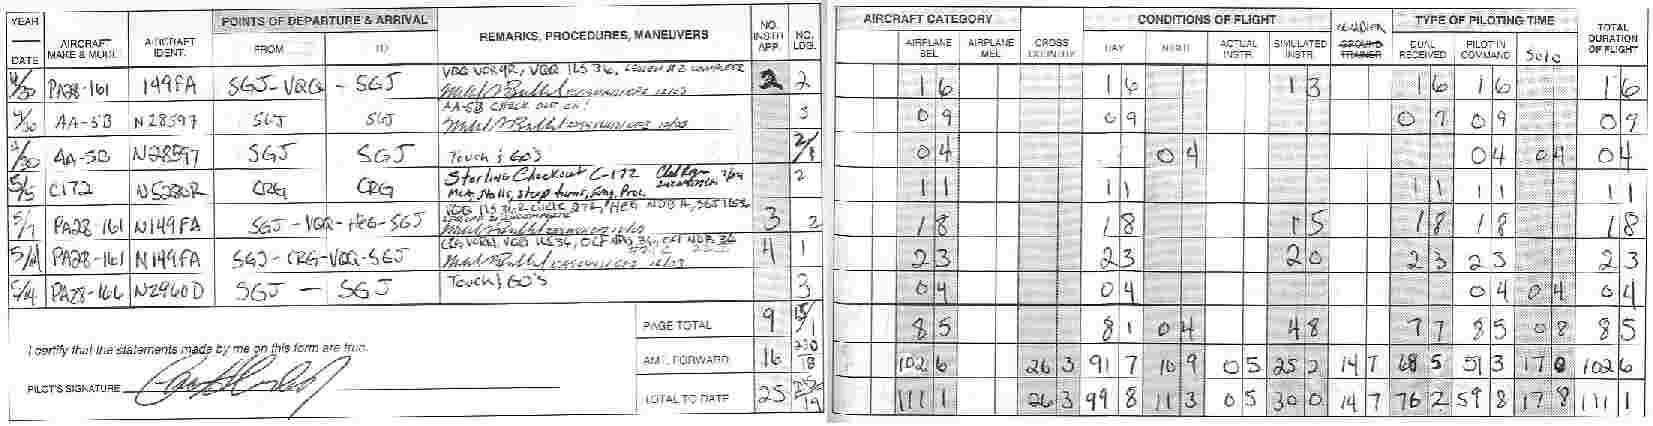 YEAR POINTS OF DEPARTURE & ARRIVAL NO. INSTR APP. NO. LDG. AIRCRAFT CATEGORY CONDITIONS OF FLIGHT TYPE OF PILOTING TIME TOTAL DURATION OF FLIGHT
DATE AIRCRAFT MAKE & MODEL AIRCRAFT IDENT. FROM TO REMARKS, PROCEDURES, MANEUVERS AIRPLANE SEL AIRPLANE MEL CROSS COUNTRY DAY NIGHT ACTUAL INSTR. SIMULATED INSTR. GROUND TRAINER DUAL RECEIVED PILOT IN COMMAND Solo
4/30 PA28-161 149FA SGJ-VQQ - SGJ VQQ ILS 36, 2 2 1 6 1 6 1 3 1 6 1 6 1 6
4/30 AA-5B N28597 SGJ SGJ AA-5B CHECK OUT OK! 3 0 9 0 9 0 9 0 9 0 9
4/30 AA-5B N28597 SGJ SGJ Touch & GO'S 2/1 0 4 0 4 0 4 0 4 0 4
5/5 C172 CRG CRG Sterling Checkout C-172 2 1 1 1 1 1 1 1 1 1 1
Stalls, Steep turns, Emg. Proc.
5/7 PA28-161 N149FA SGJ-VQQ-HEG-SGJ 3 2 1 8 1 8 1 5 1 8 1 8 1 8
5/11 PA28-161 N149FA SGJ-CRG-VQQ-SGJ VQQ ILS 36, 4 1 2 3 2 3 2 0 2 3 2 3 2 3
5/14 PA28-166 N2960D SGJ - SGJ Touch & GO'S 3 0 4 0 4 0 4 0 4 0 4
PAGE TOTAL 9 8 5 8 1 0 4 4 8 7 7 8 5 0 8 8 5
I certify that the statements made by me on this form are true.
AMT. FORWARD 16 230/18 102 6 26 3 91 7 10 9 0 5 25 2 14 7 68 5 51 3 17 0 102 6
PILOT'S SIGNATURE
TOTAL TO DATE 25 111 1 26 3 99 8 11 3 0 5 30 0 14 7 76 2 59 8 17 8 111 1